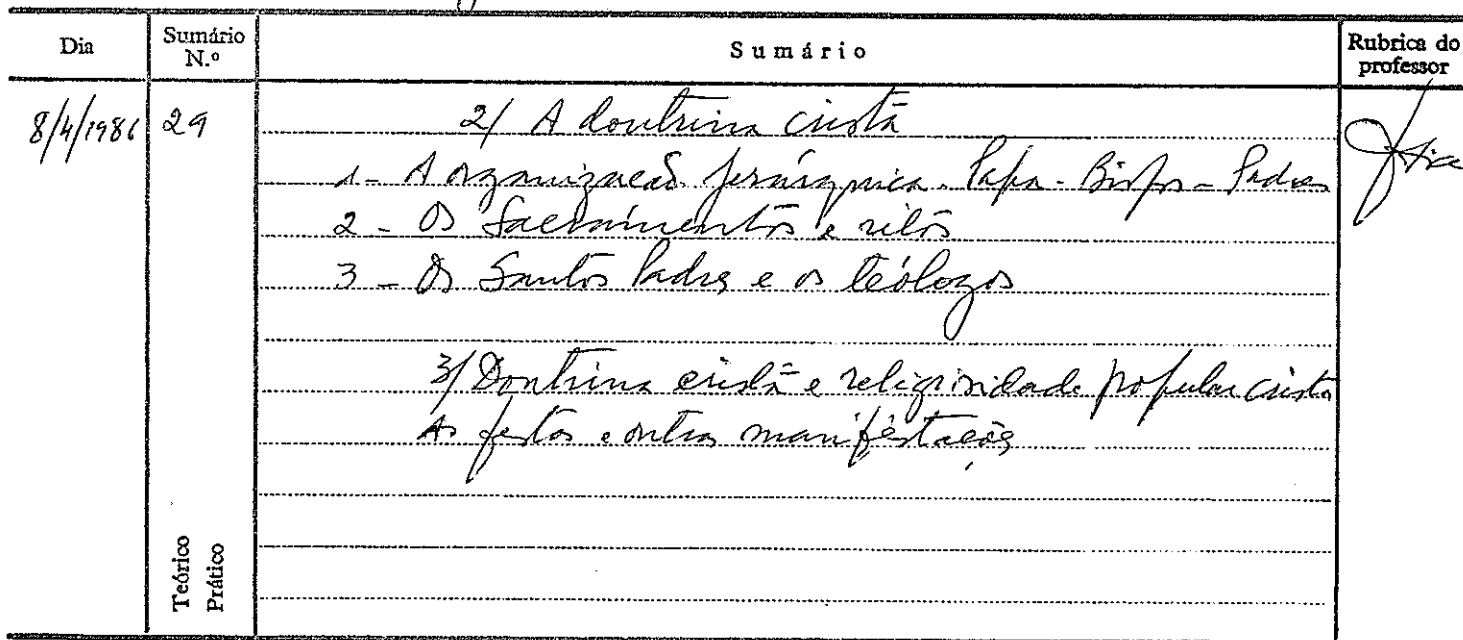 Dia Sumário N.º Sumário Rubrica do professor
8/4/1986 29 2/ A doutrina cristã
1 - A organização hierárquica. Papa - Bispos - Padres
2 - Os Sacramentos e ritos
3 - Os Santos Padres e os teólogos
3/ Doutrina cristã e religiosidade popular cristã
As festas e outras manifestações
Teórico
Prático